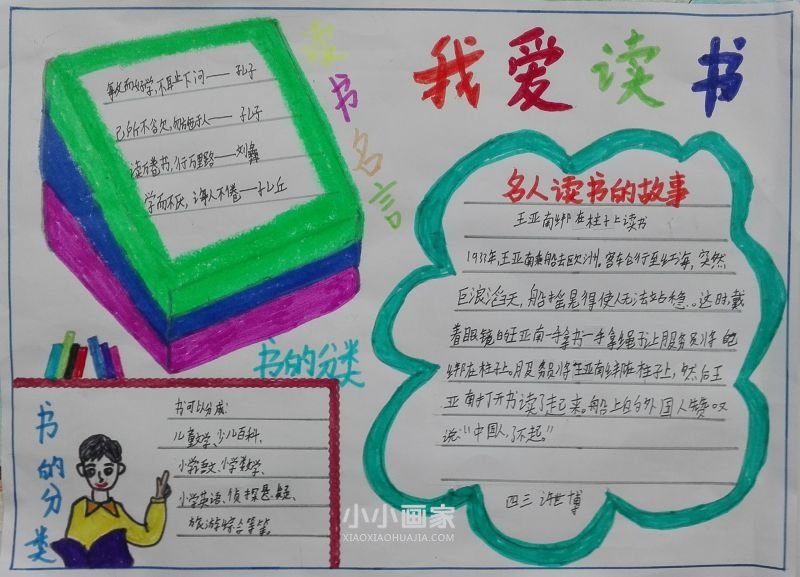 我爱读书
读书名言
敏而好学,不耻下问——孔子
己所不欲,勿施于人——孔子
读万卷书,行万里路——刘彝
学而不厌,诲人不倦——孔丘
名人读书的故事
王亚南绑在柱子上读书
1933年,王亚南乘船去欧洲。客轮行至红海,突然
巨浪滔天,船摇晃得使人无法站稳。这时,戴
着眼镜的王亚南一手拿书一手拿绳子让服务员将他
绑在柱子上。服务员将王亚南绑在柱子上,然后王
亚南打开书读了起来。船上的外国人赞叹
说:“中国人,了不起。”
四三 许世博
书的分类
书的分类
书可以分成:
儿童文学、少儿百科、
小学语文、小学数学、
小学英语、侦探悬疑、
旅游综合等等。
小小画家
XIAOXIAOHUAJIA.COM